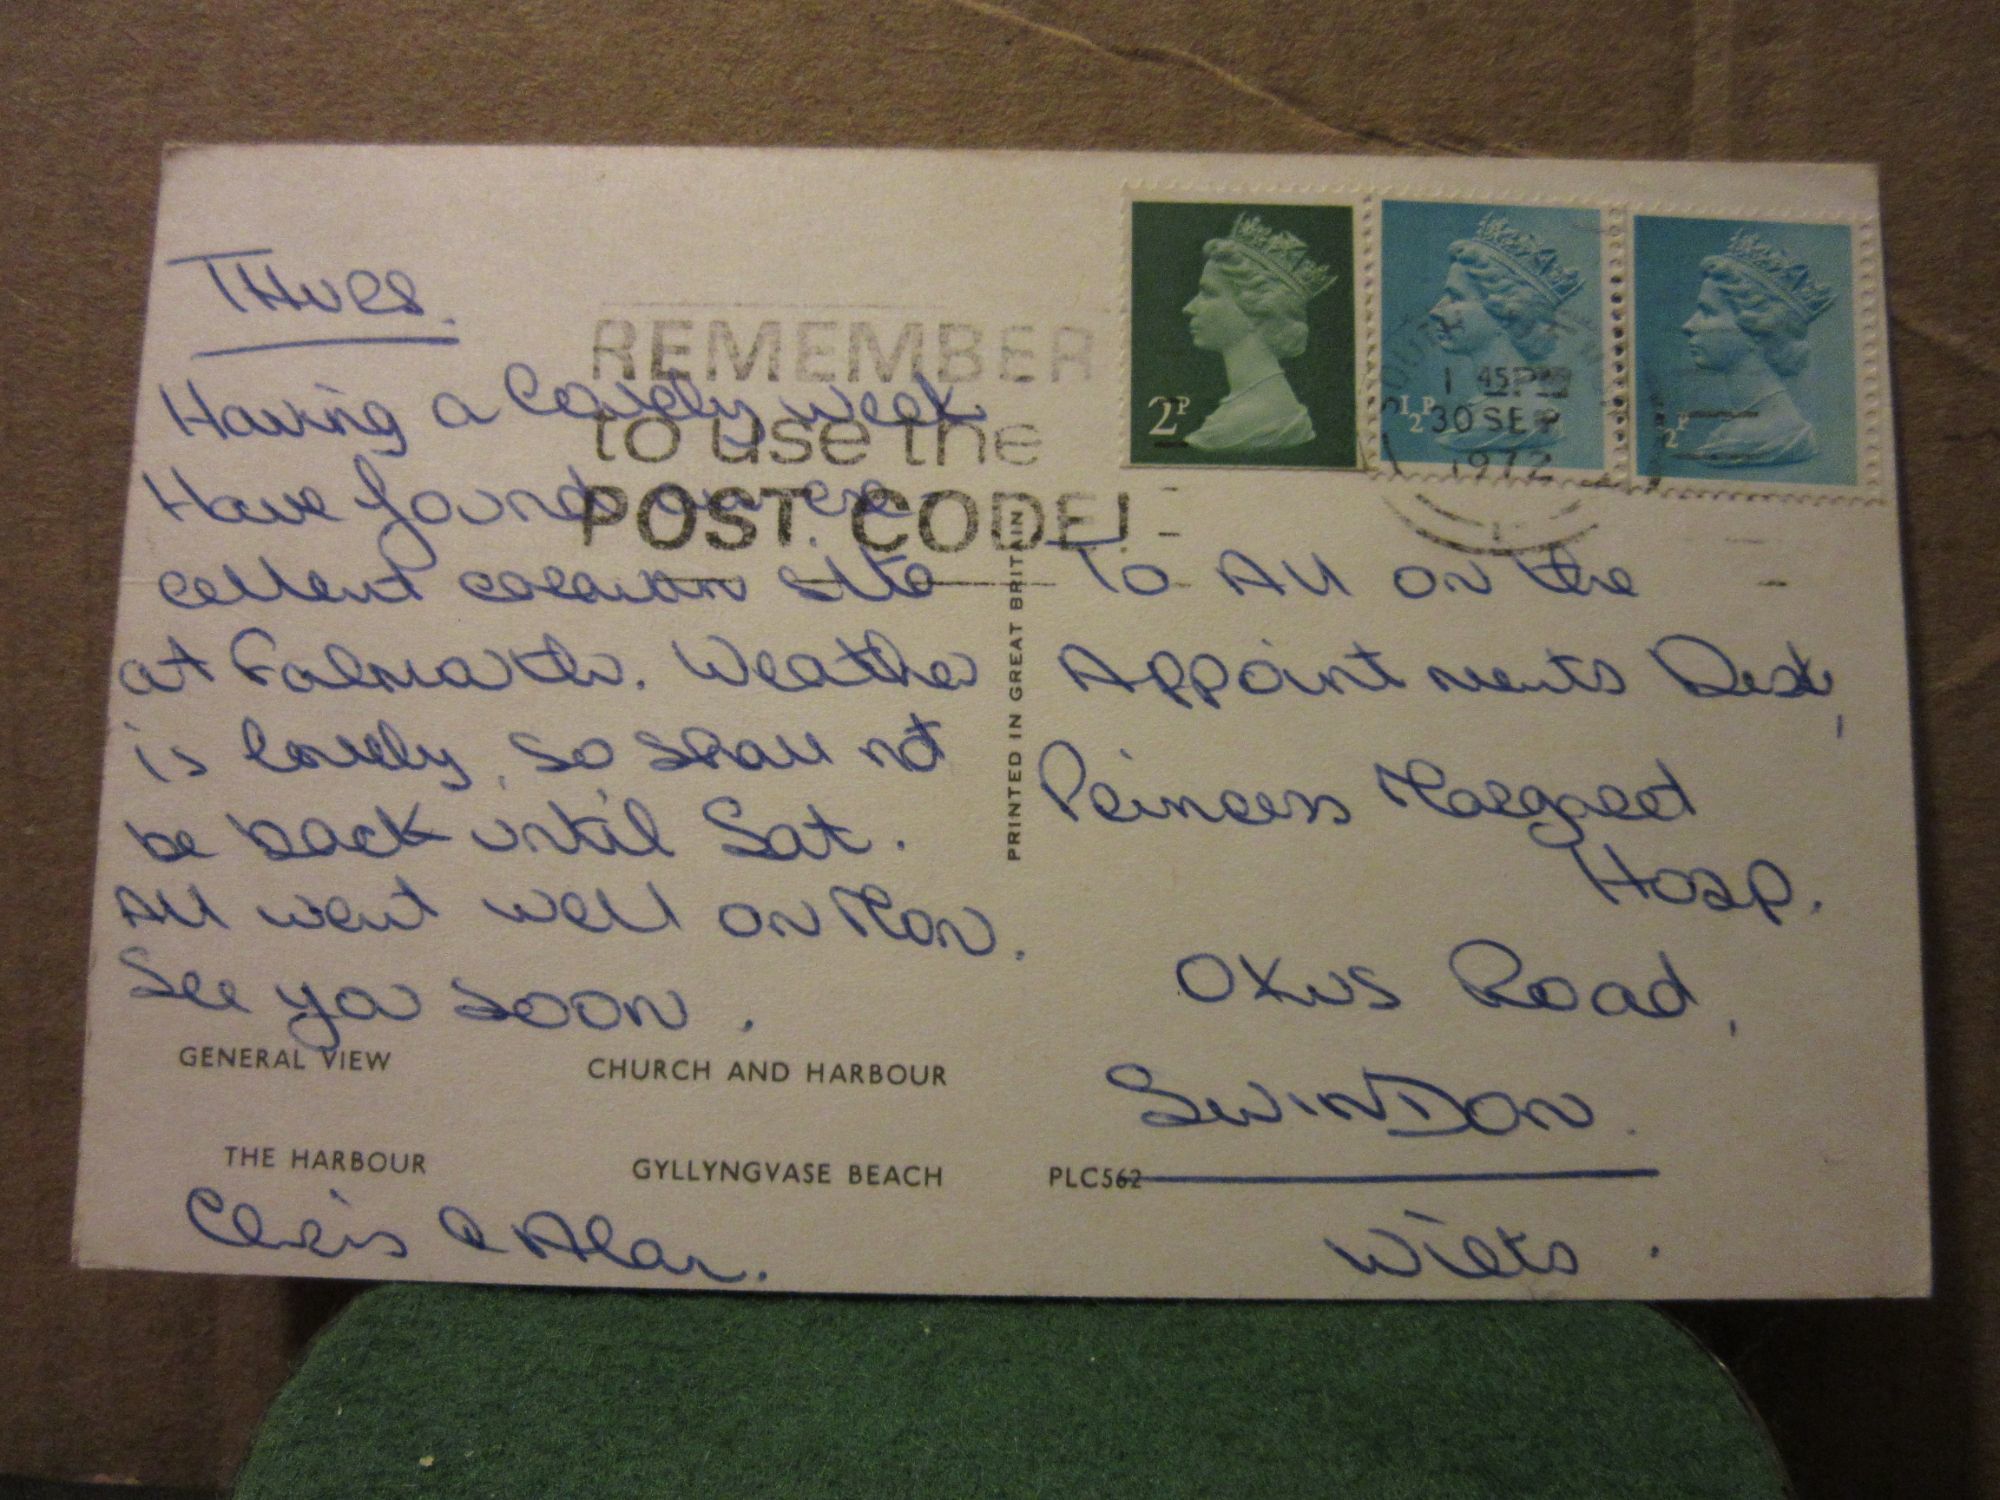 THURS.
Having a lovely week
Have found an ex-
cellent caravan site
at Falmouth. Weather
is lovely, so shall not
be back until Sat.
All went well on Mon.
See you soon.
GENERAL VIEW
CHURCH AND HARBOUR
THE HARBOUR
GYLLYNGVASE BEACH
Chris & Alan.
REMEMBER
to use the
POST CODE!
PRINTED IN GREAT BRITAIN
2P
½P
½P
1 45PM
30 SEP
1972
To All on the
Appointments Desk,
Princess Margaret
Hosp.
Oxus Road,
SWINDON.
PLC562
Wilts.